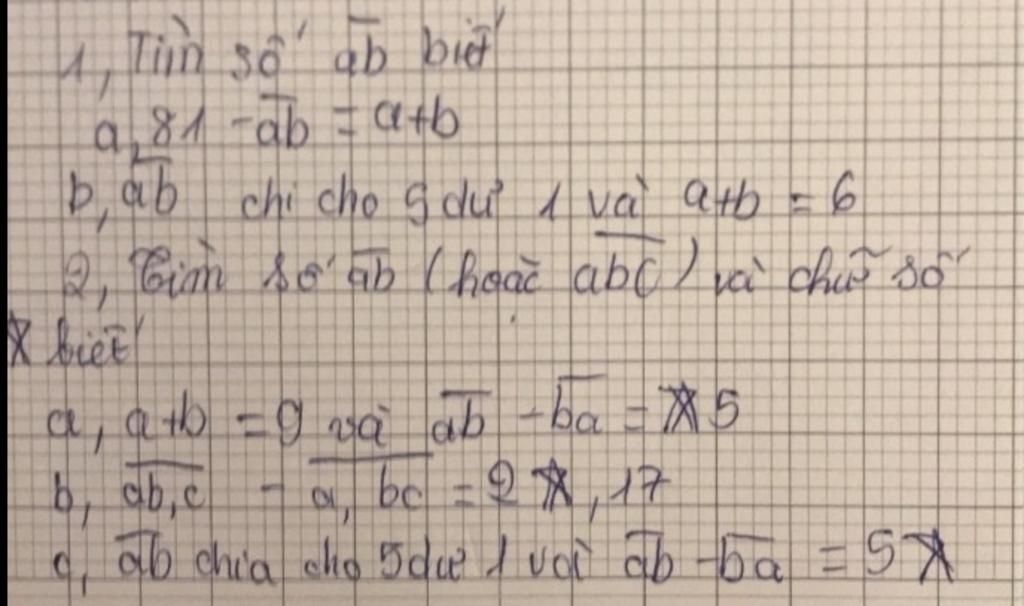 1, Tìm số ab biết
a, 81 - ab = a+b
b, ab chi cho 5 dư 1 và a+b = 6
2, Tìm số ab (hoặc abc) và chữ số
* biết
a, a+b = 9 và ab - ba = *5
b, ab,c - a,bc = 2*,17
c, ab chia cho 5 dư 1 và ab - ba = 5*